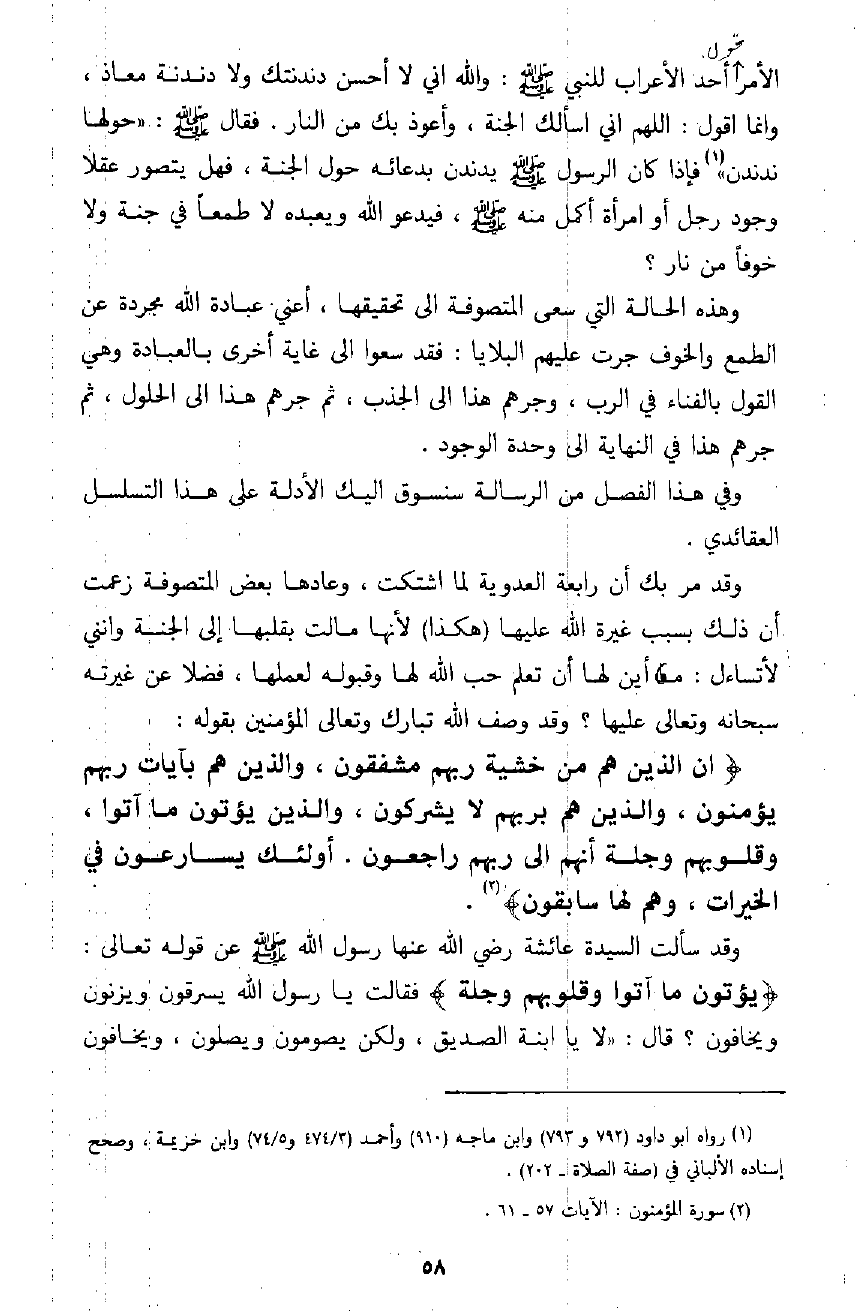 تحول
الأمر أحد الأعراب للنبي ﷺ : والله اني لا أحسن دندنتك ولا دندنة معاذ ،
وانما اقول : اللهم اني اسألك الجنة ، وأعوذ بك من النار . فقال ﷺ : «حولها
ندندن»(١) فإذا كان الرسول ﷺ يدندن بدعائه حول الجنة ، فهل يتصور عقلا
وجود رجل أو امرأة أكمل منه ﷺ ، فيدعو الله ويعبده لا طمعاً في جنة ولا
خوفاً من نار ؟
وهذه الحالة التي سعى المتصوفة الى تحقيقها ، أعني عبادة الله مجردة عن
الطمع والخوف جرت عليهم البلايا : فقد سعوا الى غاية أخرى بالعبادة وهي
القول بالفناء في الرب ، وجرهم هذا الى الجذب ، ثم جرهم هذا الى الحلول ، ثم
جرهم هذا في النهاية الى وحدة الوجود .
وفي هذا الفصل من الرسالة سنسوق اليك الأدلة على هذا التسلسل
العقائدي .
وقد مر بك أن رابعة العدوية لما اشتكت ، وعادها بعض المتصوفة زعمت
أن ذلك بسبب غيرة الله عليها (هكذا) لأنها مالت بقلبها إلى الجنة وانني
لأتساءل : من أين لها أن تعلم حب الله لها وقبوله لعملها ، فضلا عن غيرته
سبحانه وتعالى عليها ؟ وقد وصف الله تبارك وتعالى المؤمنين بقوله :
﴿ ان الذين هم من خشية ربهم مشفقون ، والذين هم بآيات ربهم
يؤمنون ، والذين هم بربهم لا يشركون ، والذين يؤتون ما آتوا ،
وقلوبهم وجلة أنهم الى ربهم راجعون . أولئك يسارعون في
الخيرات ، وهم لها سابقون﴾(٢) .
وقد سألت السيدة عائشة رضي الله عنها رسول الله ﷺ عن قوله تعالى :
﴿يؤتون ما آتوا وقلوبهم وجلة ﴾ فقالت يا رسول الله يسرقون ويزنون
ويخافون ؟ قال : «لا يا ابنة الصديق ، ولكن يصومون ويصلون ، ويخافون
(١) رواه ابو داود (٧٩٢ و ٧٩٣) وابن ماجه (٩١٠) وأحمد (٤٧٤/٣ و٧٤/٥) وابن خزيمة ، وصحح
إسناده الألباني في (صفة الصلاة ـ ٢٠٢) .
(٢) سورة المؤمنون : الآيات ٥٧ ـ ٦١ .
٥٨